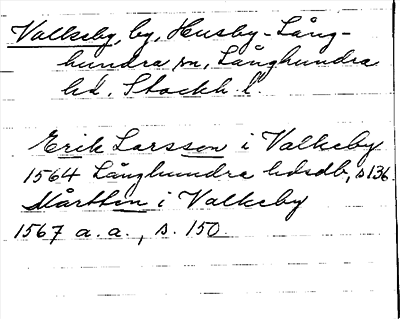 Valkeby, by, Husby-Lång-
hundra sn, Långhundra
hd, Stockh. l.
Erik Larsson i Valkeby
1564 Långhundra hdsdb, s 136.
Mårtten i Valkeby
1567 a. a., s. 150.